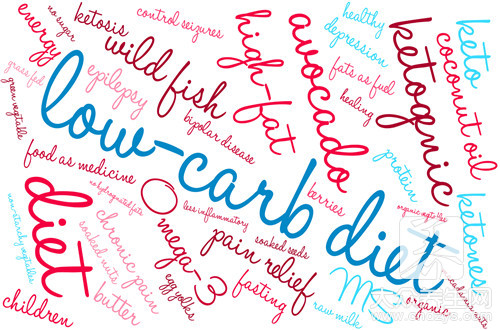 control seizures
healthy
no sugar
ketosis
energy
wild fish
high-fat
depression
avocado
ketogenic
keto
coconut oil
grass fed
epilepsy
fats as fuel
green vegetables
bipolar disease
healing
low-carb diet
food as medicine
protein
no hydrogenated fats
less inflammatory
berries
diet
Omega-3
non-starchy vegetables
chronic pain
soaked nuts
pain relief
soaked seeds
ketones
egg yolks
fasting
MS
organic
butter
children
raw milk